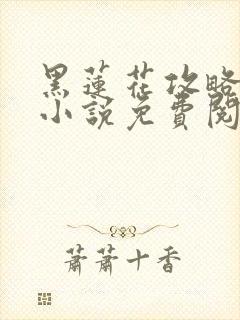 黑蓮花攻略
小說免費閱
蕭蕭十香